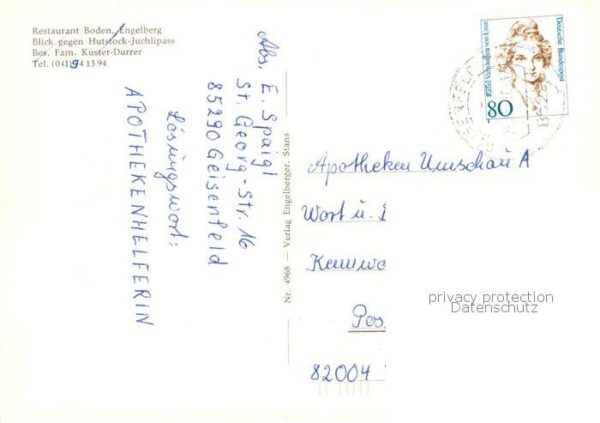 Restaurant Boden, Engelberg
Blick gegen Hutstock-Juchlipass
Bes. Fam. Kuster-Durrer
Tel. (041) 94 13 94
Abs. E. Spaigl
St. Georg-Str. 16
85290 Geisenfeld
Lösungswort:
APOTHEKENHELFERIN
Nr. 4968 — Verlag Engelberger, Stans
Rahel Varnhagen von Ense
Deutsche Bundespost
80
Apotheken Umschau A
Wort u.
Kennwo
Pos
82004
privacy protection
Datenschutz